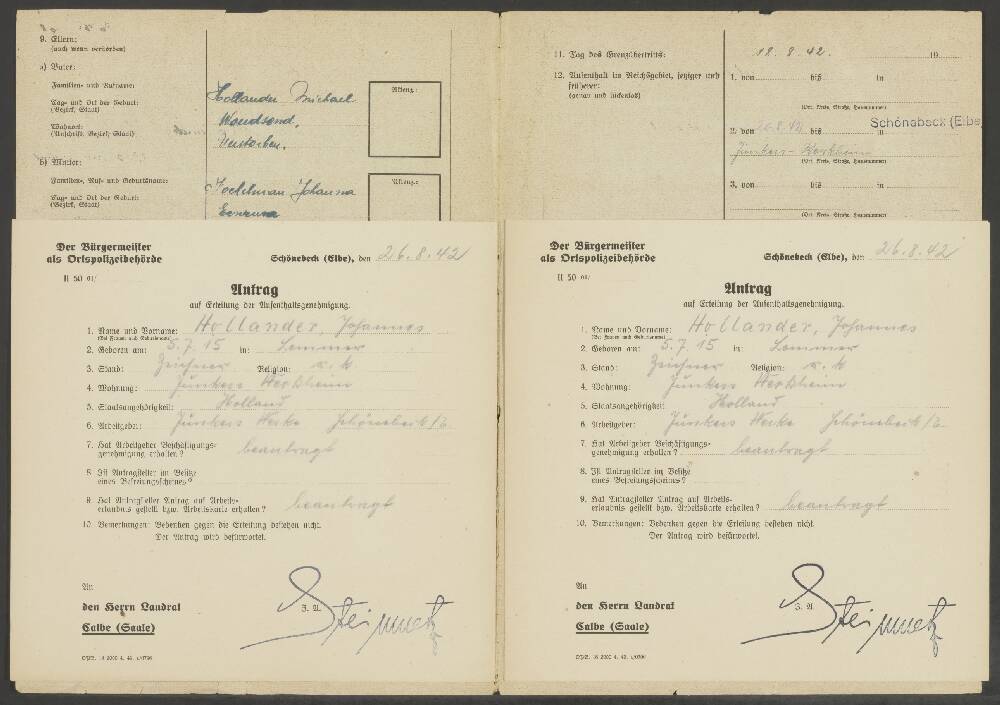 9. Eltern:
(auch wenn verstorben)
a) Vater:
Familien- und Rufname:
Hollander Michael
Tag- und Ort der Geburt:
(Bezirk, Staat)
Woudsend,
Wohnort:
(Anschrift, Bezirk, Staat)
Verstorben.
Aktenz.:
b) Mutter:
Familien-, Ruf- und Geburtsname:
Johanna
Tag- und Ort der Geburt:
(Bezirk, Staat)
Aktenz.:
11. Tag des Grenzübertritts: 18.8.42. 19
12. Aufenthalt im Reichsgebiet, jetziger und
früherer:
(genau und lückenlos)
1. von bis in
(Ort, Kreis, Straße, Hausnummer)
2. von 26.8.42 bis in Schönebeck (Elbe
Junkers-
(Ort, Kreis, Straße, Hausnummer)
3. von bis in
(Ort, Kreis, Straße, Hausnummer)
Der Bürgermeister
als Ortspolizeibehörde
Schönebeck (Elbe), den 26.8.42
II 50 01/
Antrag
auf Erteilung der Aufenthaltsgenehmigung.
1. Name und Vorname: Hollander, Johannes
(Bei Frauen auch Geburtsname)
2. Geboren am: 5.7.15 in: Lemmer
3. Stand: Zeichner Religion: r. k.
4. Wohnung: Junkers Werkheim
5. Staatsangehörigkeit: Holland
6. Arbeitgeber: Junkers Werke Schönebeck/E.
7. Hat Arbeitgeber Beschäftigungs-
genehmigung erhalten? beantragt
8. Ist Antragsteller im Besitz
eines Befreiungsscheines?
9. Hat Antragsteller Antrag auf Arbeits-
erlaubnis gestellt bzw. Arbeitskarte erhalten? beantragt
10. Bemerkungen: Bedenken gegen die Erteilung bestehen nicht.
Der Antrag wird befürwortet.
An
den Herrn Landrat
Calbe (Saale)
I. A.
Steinmetz
Der Bürgermeister
als Ortspolizeibehörde
Schönebeck (Elbe), den 26.8.42
II 50 01/
Antrag
auf Erteilung der Aufenthaltsgenehmigung.
1. Name und Vorname: Hollander, Johannes
(Bei Frauen auch Geburtsname)
2. Geboren am: 5.7.15 in: Lemmer
3. Stand: Zeichner Religion: r. k.
4. Wohnung: Junkers Werkheim
5. Staatsangehörigkeit: Holland
6. Arbeitgeber: Junkers Werke Schönebeck/E.
7. Hat Arbeitgeber Beschäftigungs-
genehmigung erhalten? beantragt
8. Ist Antragsteller im Besitz
eines Befreiungsscheines?
9. Hat Antragsteller Antrag auf Arbeits-
erlaubnis gestellt bzw. Arbeitskarte erhalten? beantragt
10. Bemerkungen: Bedenken gegen die Erteilung bestehen nicht.
Der Antrag wird befürwortet.
An
den Herrn Landrat
Calbe (Saale)
I. A.
Steinmetz